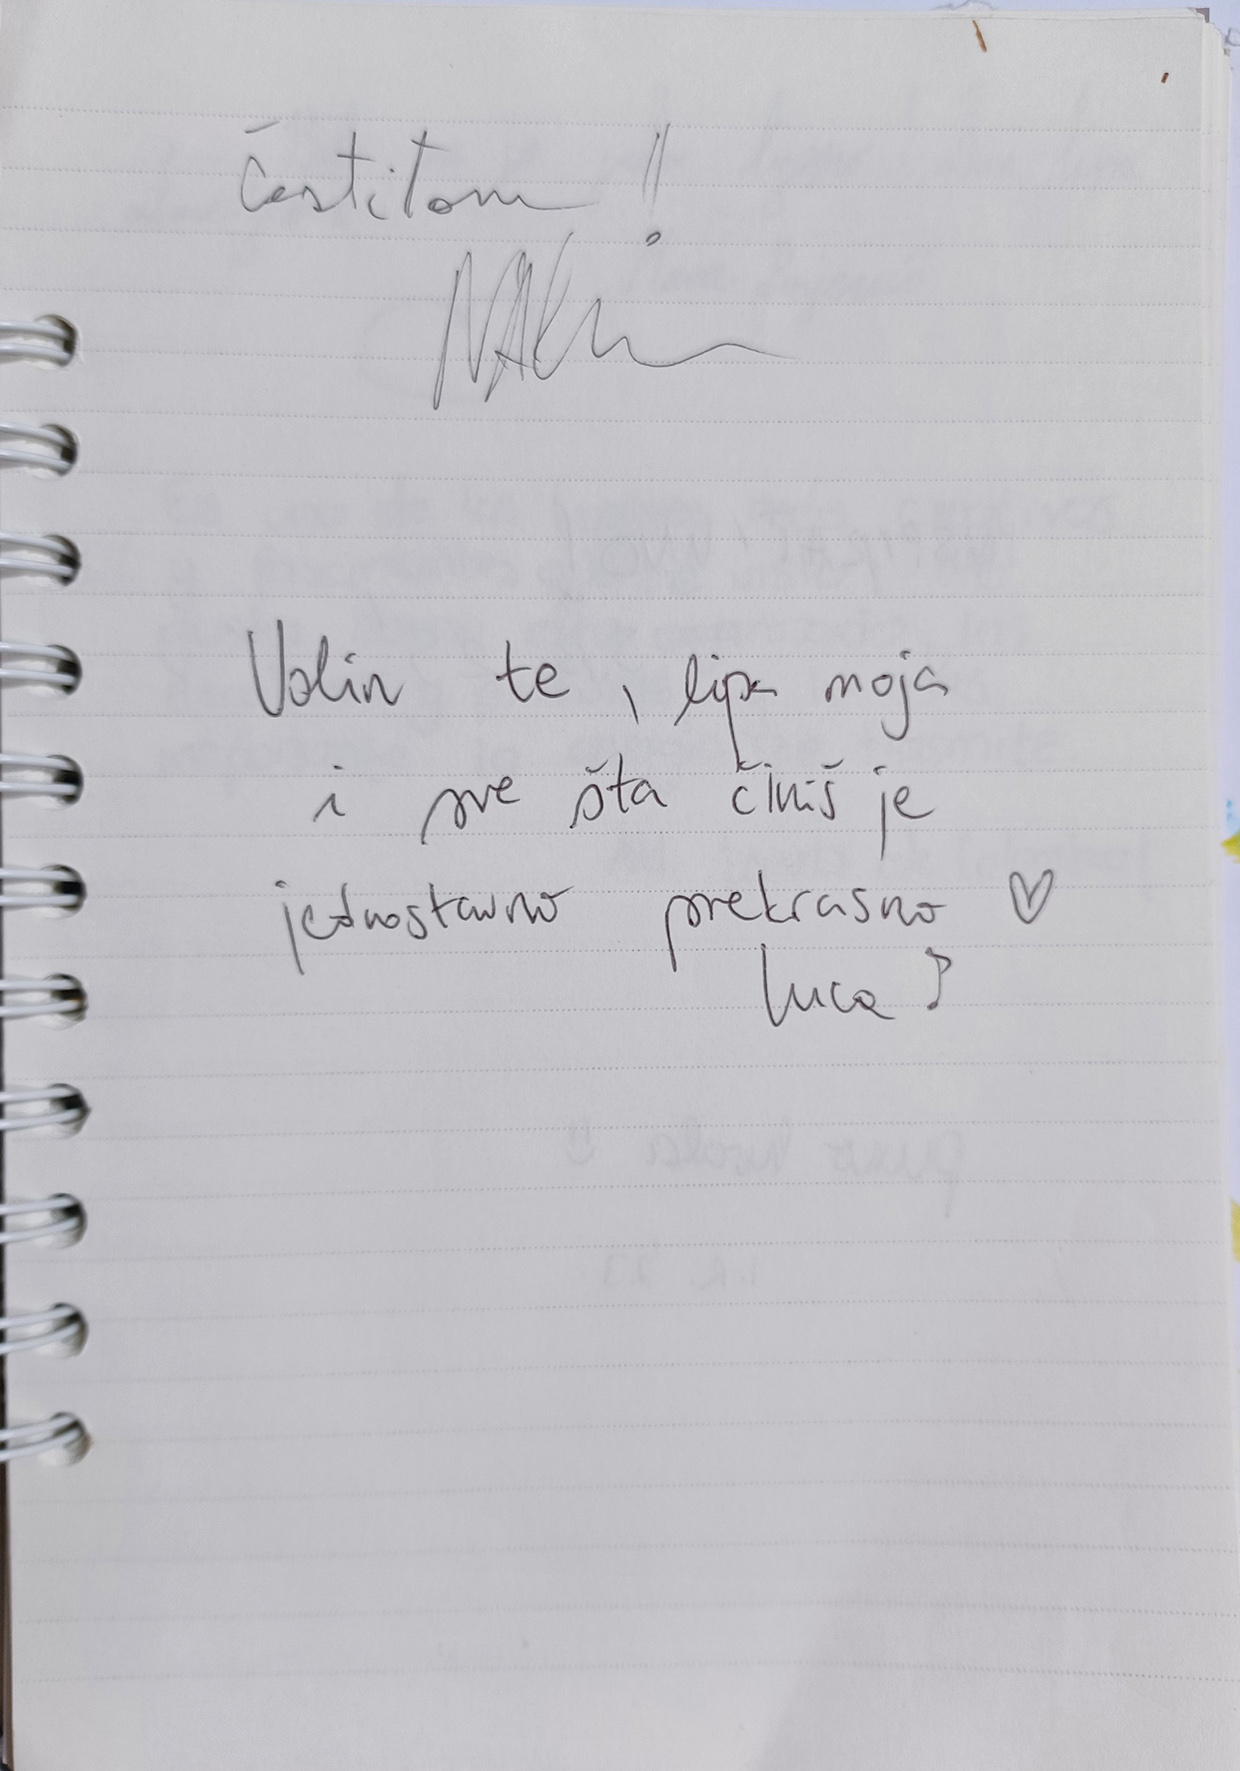 Čestitam!!
Volin te, lipa moja
i sve šta činiš je
jednostavno prekrasno ♡
Luca